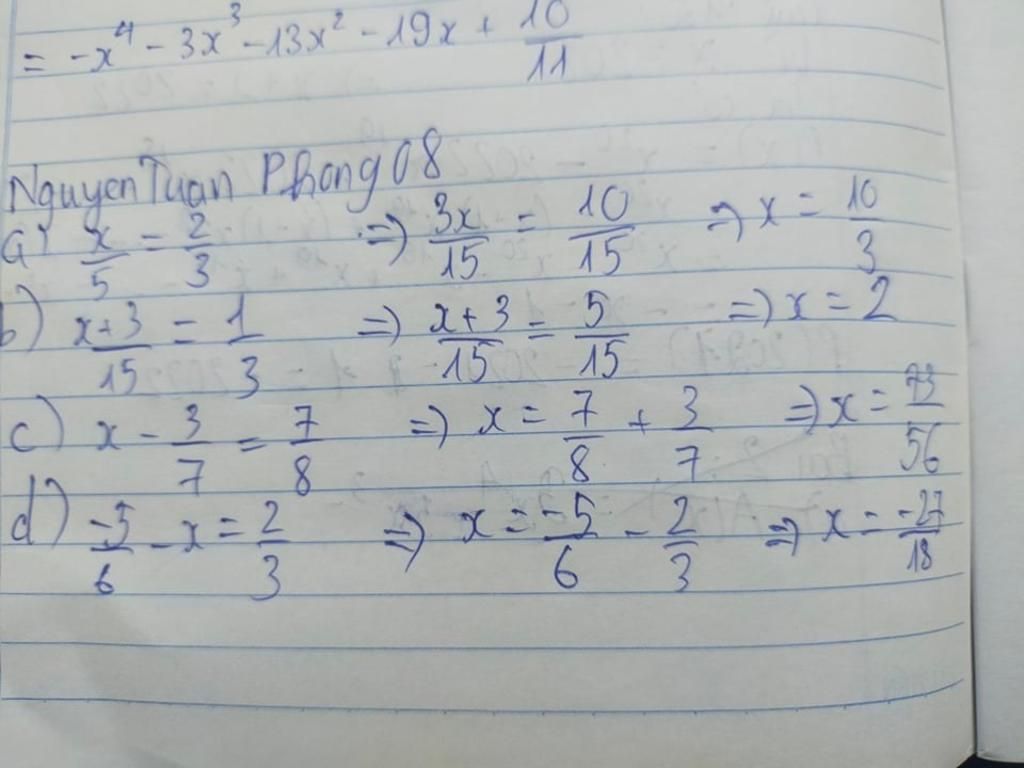 = -x⁴ - 3x³ - 13x² - 19x + 10/11
Nguyen Tuan Phong 08
a) x/5 = 2/3 => 3x/15 = 10/15 => x = 10/3
b) x+3/15 = 1/3 => x+3/15 = 5/15 => x = 2
c) x - 3/7 = 7/8 => x = 7/8 + 3/7 => x = 73/56
d) -5/6 - x = 2/3 => x = -5/6 - 2/3 => x = -27/18